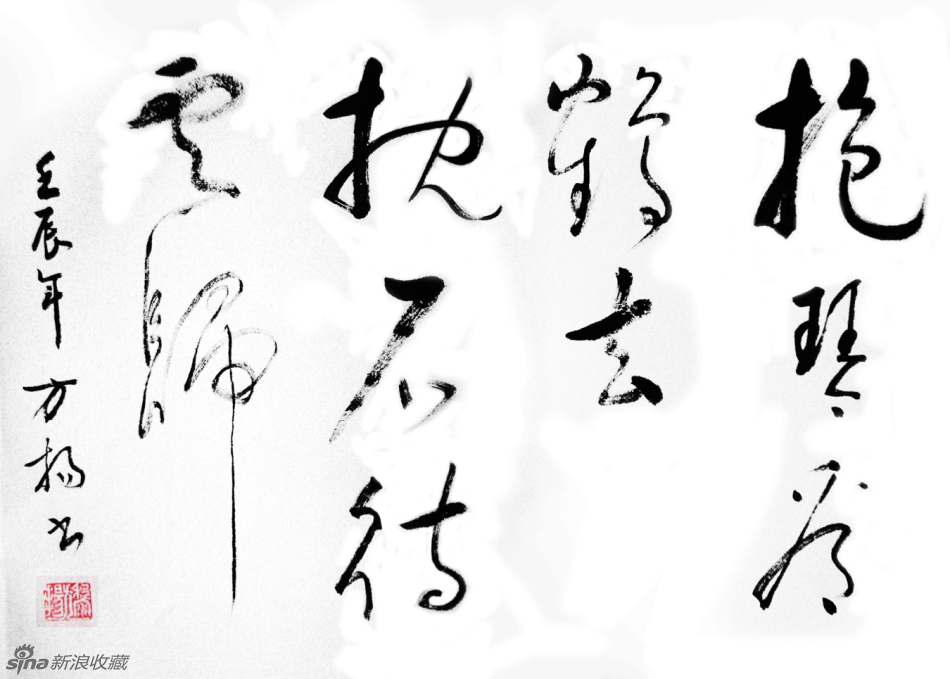 抱琴看
鶴去
枕石待
雲歸
壬辰年方楊书
sina新浪收藏